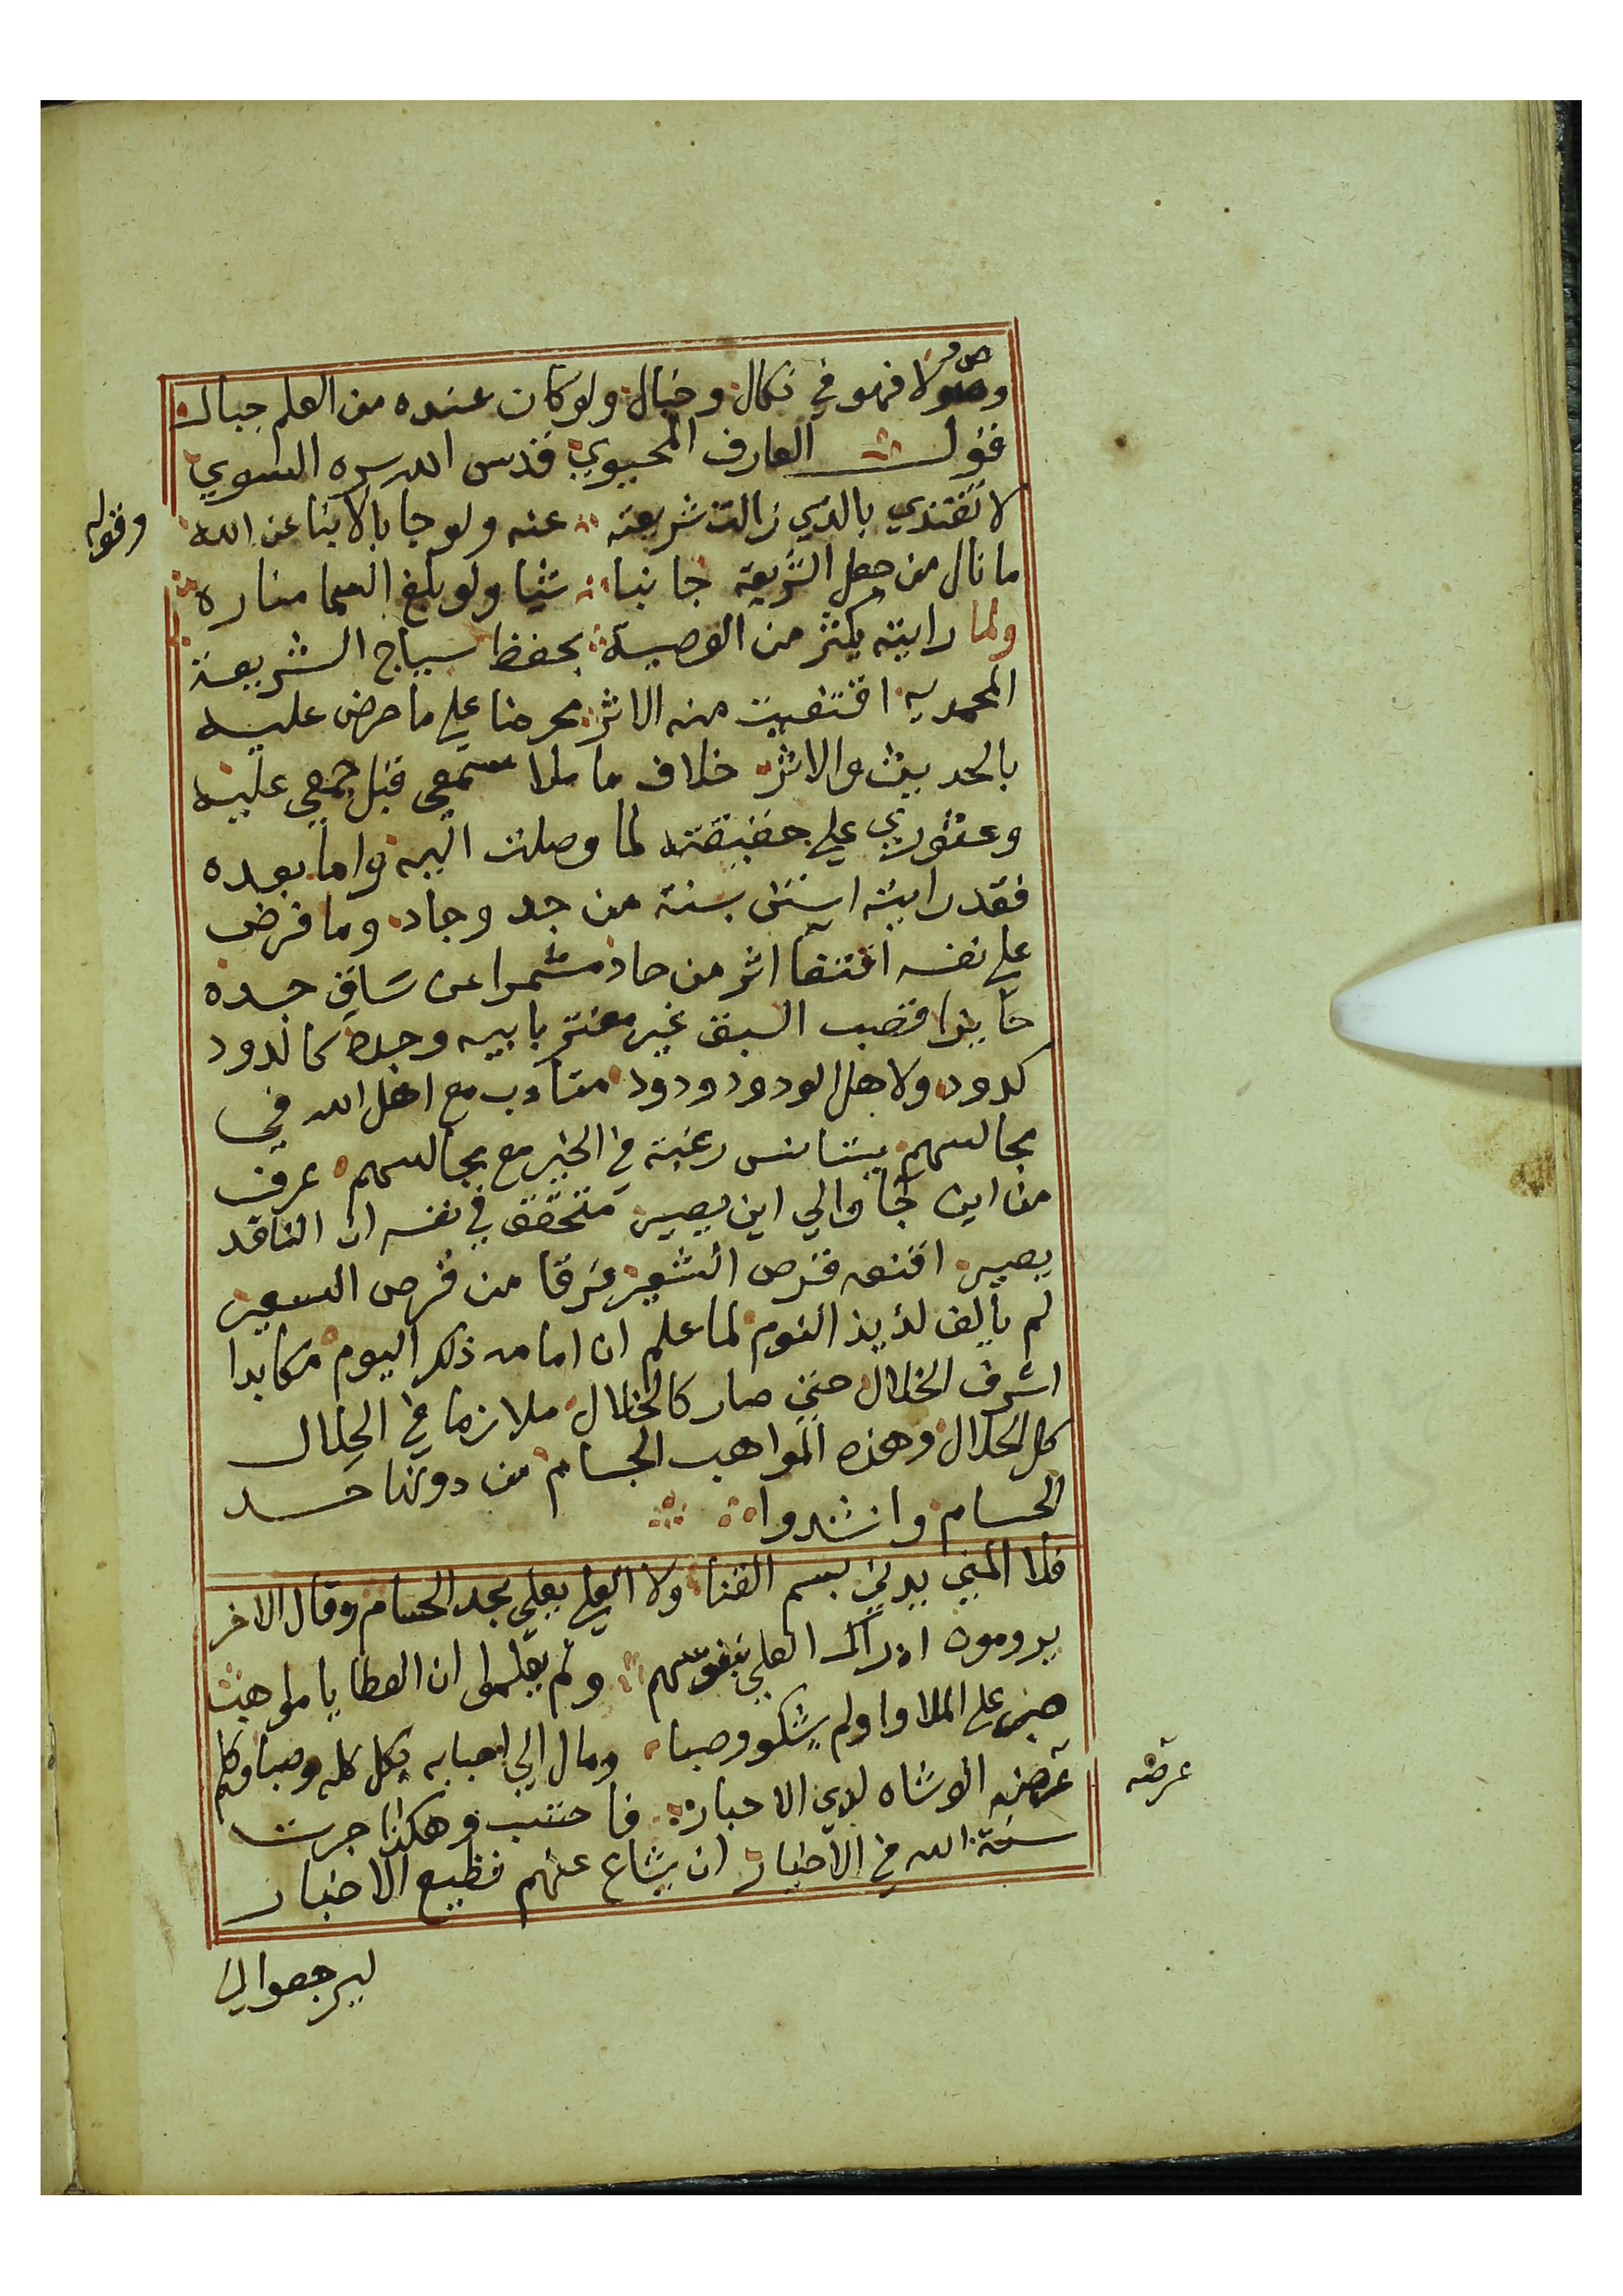 وصولا فهو في نكال وخبال ولو كان عنده من العلم جبال
قول العارف المحيوي قدس الله سره السوي
لا تقتدي بالذي زالت شريعته عنه ولو جا بالانبا عن الله
وقوله
ما نال من جعل الشريعة جانبا شيا ولو بلغ السما مناره
ولما رايته يكثر من الوصية بحفظ سياج الشريعة
المحمديه اقتفيت منه الاثر محرضا علي ما حرض عليه
بالحديث والاثر خلاف ما ملا سمعي قبل جمعي عليه
وعثوري علي حقيقته لما وصلت اليه واما بعده
فقد رايته استن بسنة من جد وجاد وما فرض
علي نفسه اقتفا اثر من حاد مشمرا عن ساق جده
حايزا قصب السبق غير مغتر بابيه وجده كالدود
كدود ولاهل الودود ودود متادب مع اهل الله في
مجالسهم يتانس رغبة في الخير مع مجالسهم عرف
من اين جا والي اين يصير متحقق في نفسه ان الناقد
بصير اقنعه قرص الشعير فرقا من قرص السعير
لم يالف لذيذ النوم لما علم ان امامه ذلك اليوم مكابدا
اشرف الخلال حتي صار كالخلال ملازما في الحلال
كل الحلال وهذه المواهب الجسام من دونها حد
الحسام وانشدوا
فلا المني يدني بسم القنا ولا العلي يعلي بحد الحسام وقال الاخر
يرومون ادراك العلي بنفوسهم ولم يعلموا ان العطايا مواهب
صبر علي الملاوا ولم يشكو وصبا ومال الي احبابه بكل كله وصبا وكم
عرضه الوشاه لدي الاحبار فاحتسب وهكذا جرت
عرضه
سنة الله في الاخيار ان يشاع عنهم فظيع الاخبار
ليرجعوا الي